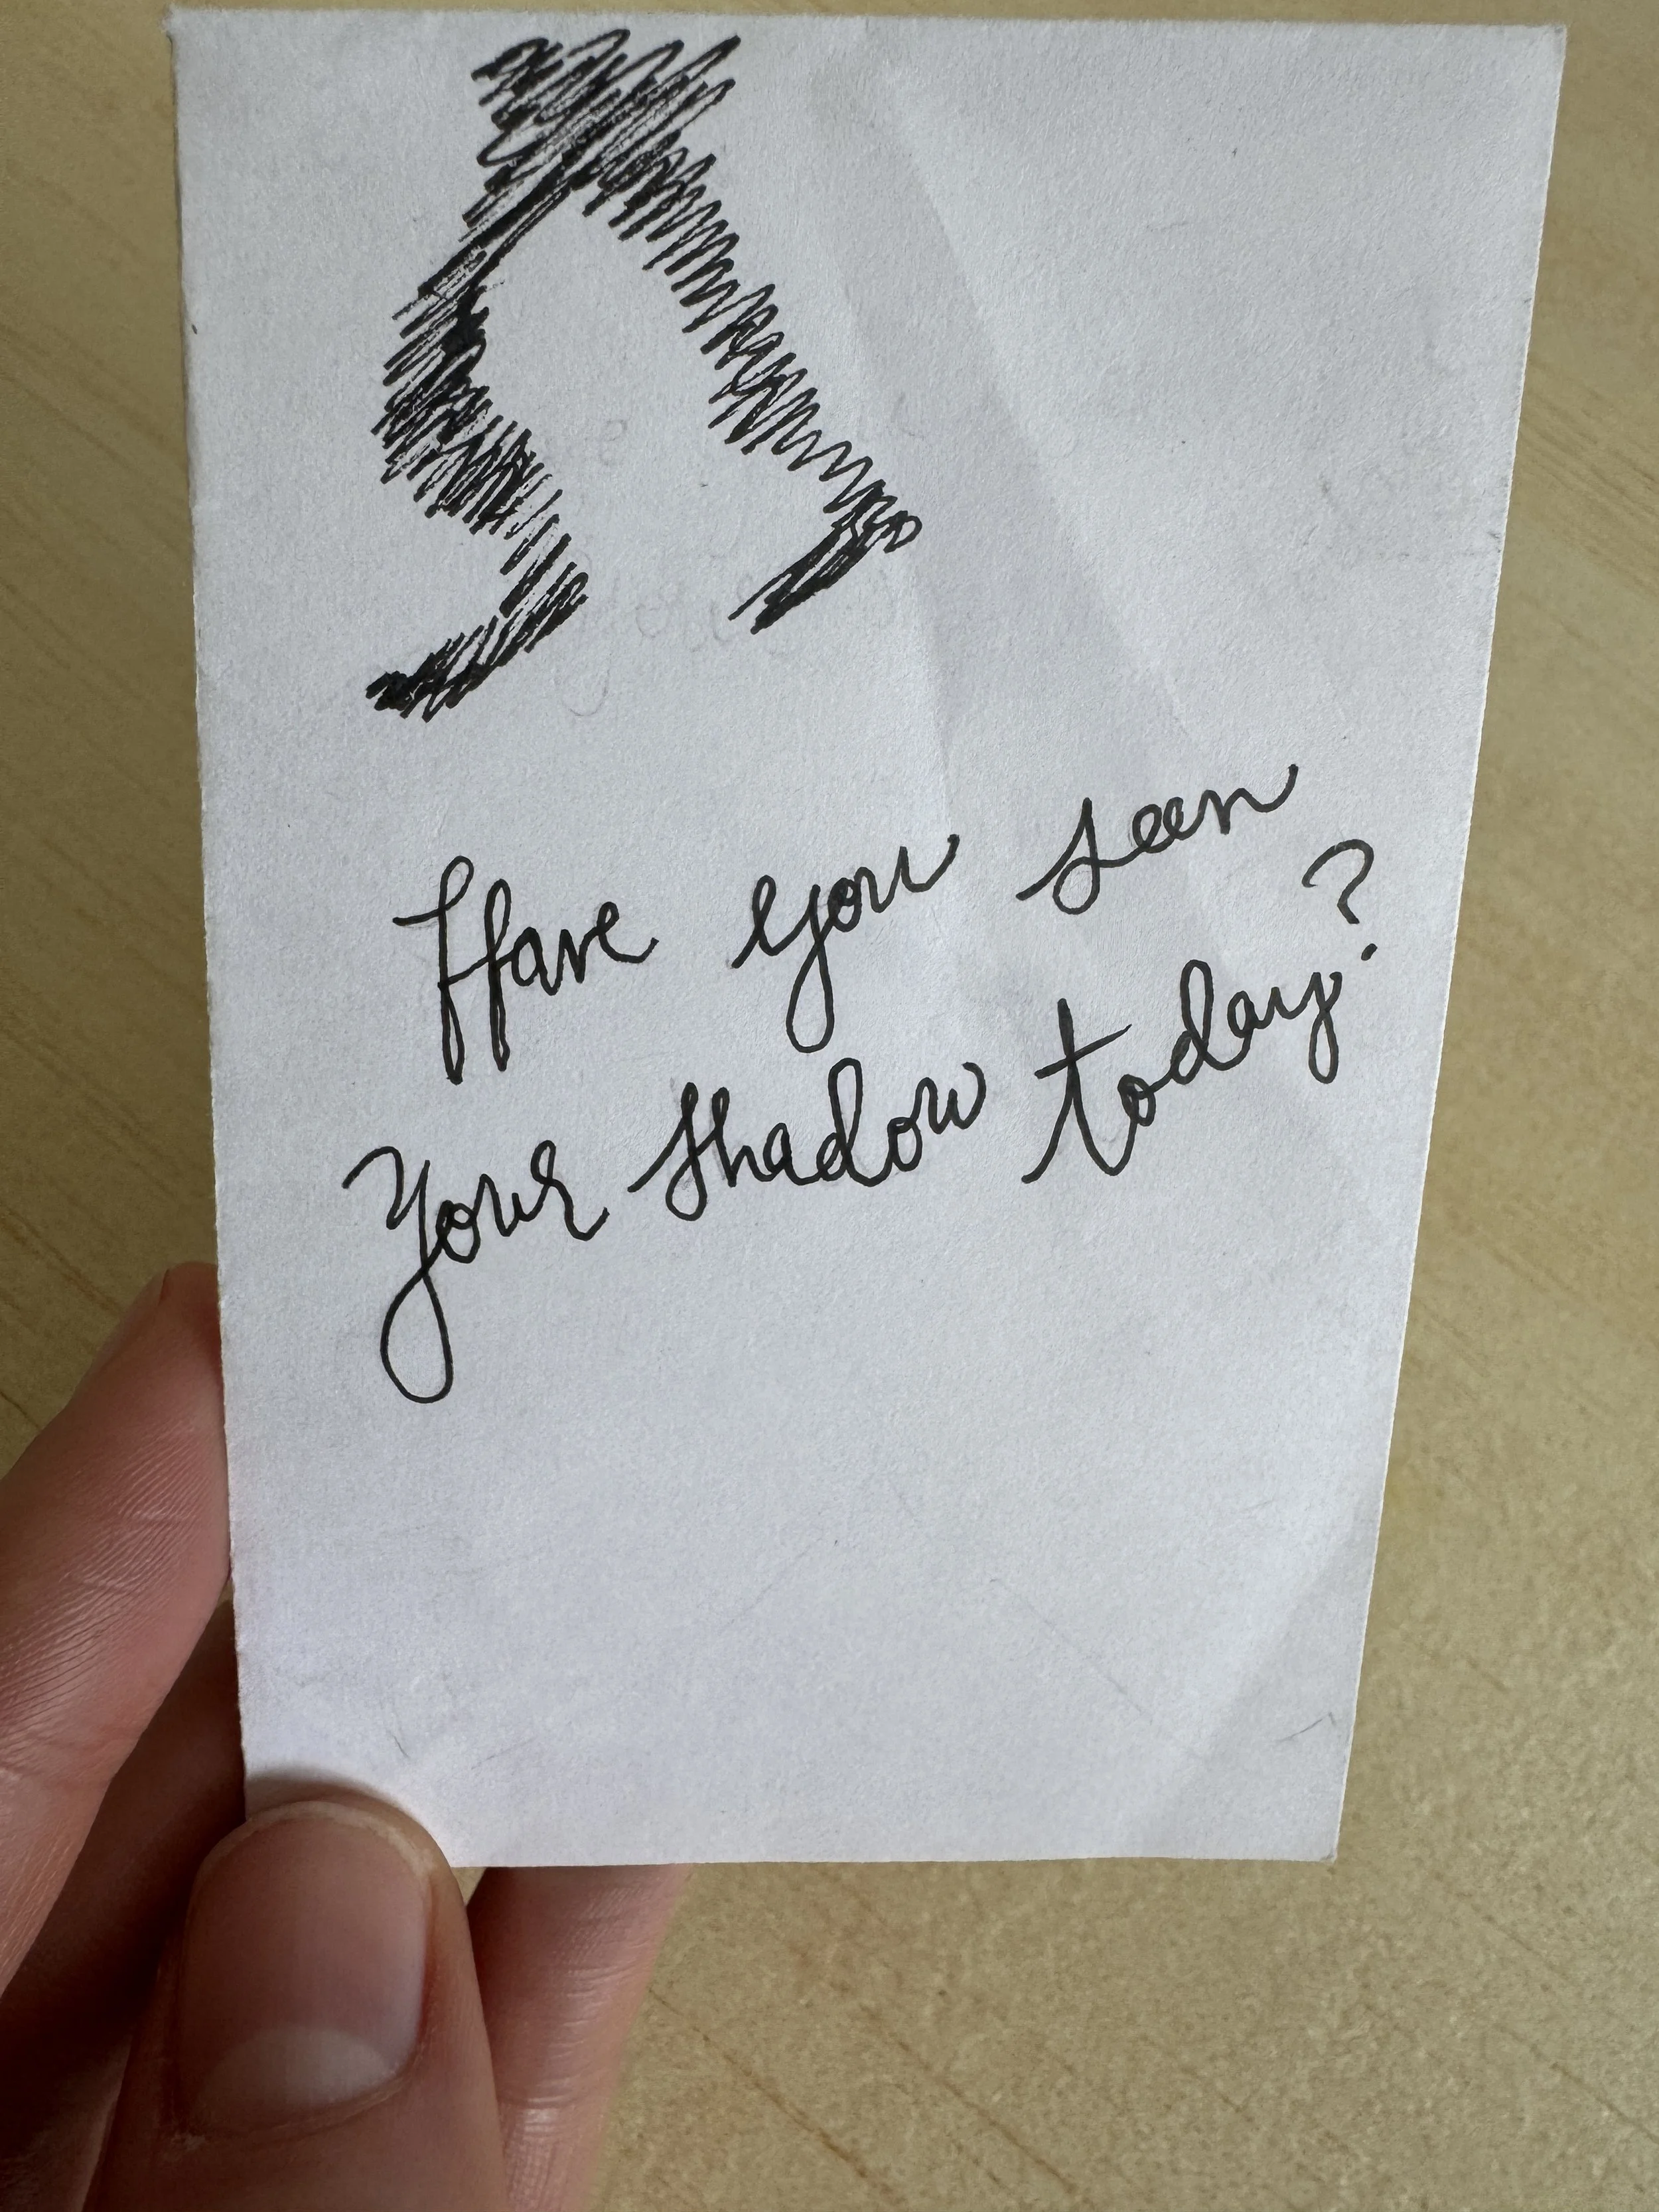 Have you seen
your shadow today?